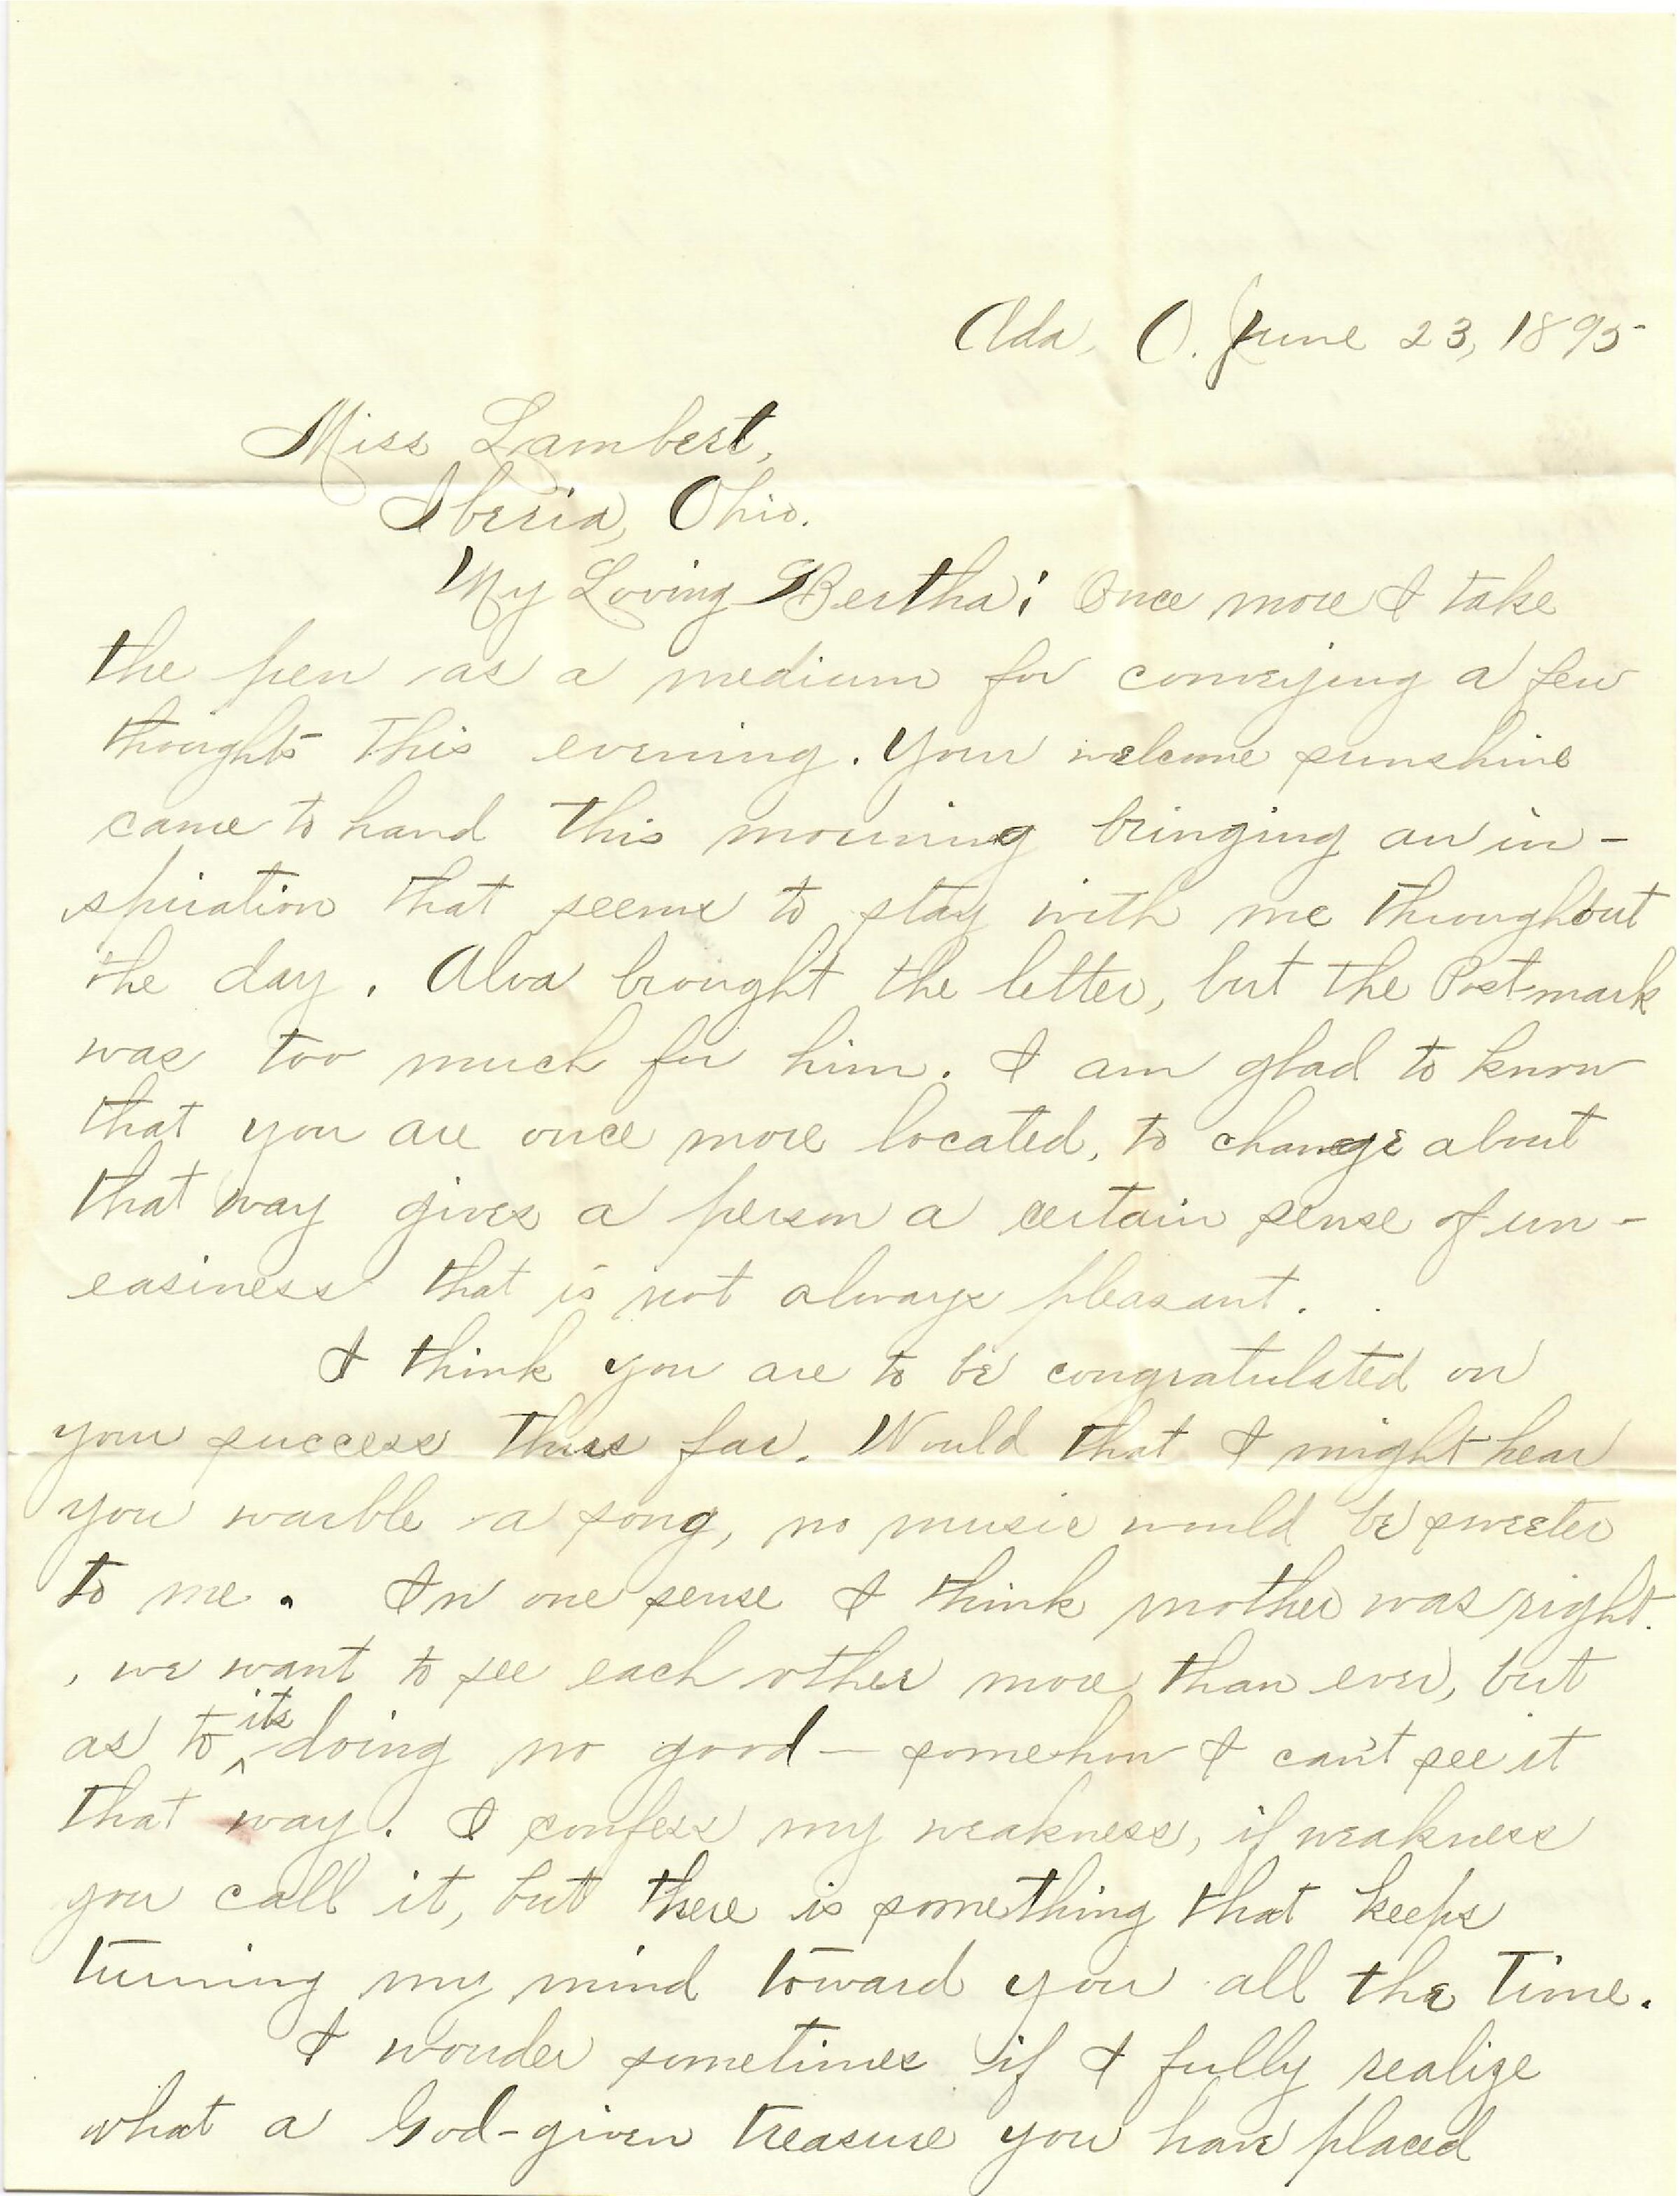 Ada, O. June 23, 1895
Miss Lambert,
Iberia, Ohio.
My Loving Bertha; Once more I take
the pen as a medium for conveying a few
thoughts this evening. Your welcome sunshine
came to hand this morning bringing an in-
spiration that seems to stay with me throughout
the day. Alva brought the letter, but the Postmark
was too much for him. I am glad to know
that you are once more located, to change about
that way gives a person a certain sense of un-
easiness that is not always pleasant.
I think you are to be congratulated on
your success thus far. Would that I might hear
you warble a song, no music would be sweeter
to me. In one sense I think mother was right.
, we want to see each other more than ever, but
as to its doing no good - somehow I can't see it
that way. I confess my weakness, if weakness
you call it, but there is something that keeps
turning my mind toward you all the time.
I wonder sometimes if I fully realize
what a God-given treasure you have placed